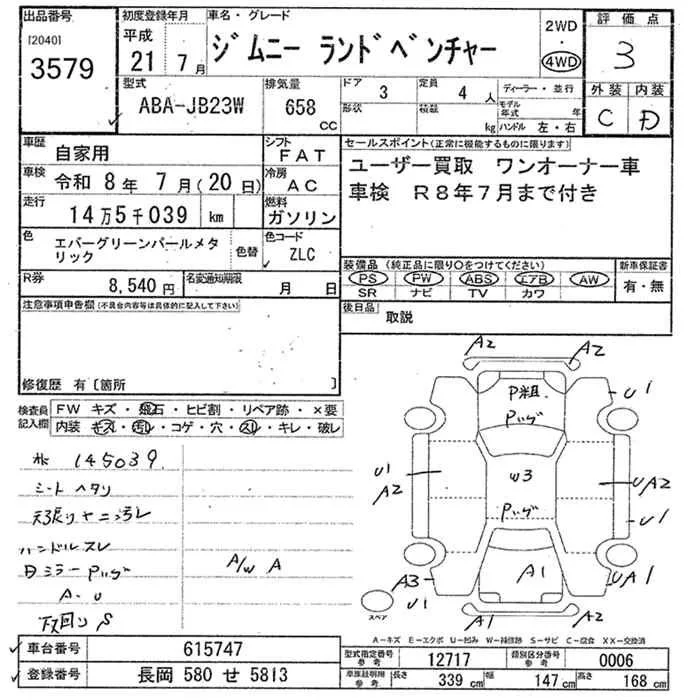 出品番号 初度登録年月 車名・グレード 2WD 評価点
[2040] 平成 ジムニー ランドベンチャー 4WD 3
3579 21年 7月
型式 排気量 ドア 3 定員 4人 ディーラー・並行 外装 内装
ABA-JB23W 658 CC 形状 積載 kg モデル年式 年 C D
ハンドル 左・右
車歴 自家用 シフト FAT セールスポイント(正常に機能するものに限ります)
車検 令和 8年 7月(20日) 冷房 AC ユーザー買取 ワンオーナー車
走行 14万5千039 km 燃料 ガソリン 車検 R8年7月まで付き
色 エバーグリーンパールメタリック 色替 色コード ZLC
装備品(純正品に限り○をつけてください) 新車保証書
R券 8,540円 名変通知期限 月 日 PS PW ABS エアB AW 有・無
SR ナビ TV カワ
注意事項申告欄(不具合内容等は具体的に記入して下さい) 後日品 取説
修復歴 有〔箇所 〕
検査員記入欄 FW キズ・飛石・ヒビ割・リペア跡・×要
内装 キズ・汚れ・コゲ・穴・スレ・キレ・破レ
145039
シートヘタリ
天張りヤニ汚レ
ハンドルスレ
A/W A
A-U
下回りS
A2 A2
P粗
U1
U1 A2 W3 UA2
U1
A3 U1 A1 UA1
スペア A1 A2
A-キズ E-エクボ U-凹み W-補修跡 S-サビ C-腐食 XX-交換済
車台番号 615747 型式指定番号 参考 12717 類別区分番号 参考 0006
登録番号 長岡 580 せ 5813 車庫証明用 参考 長さ 339 cm 幅 147 cm 高さ 168 cm